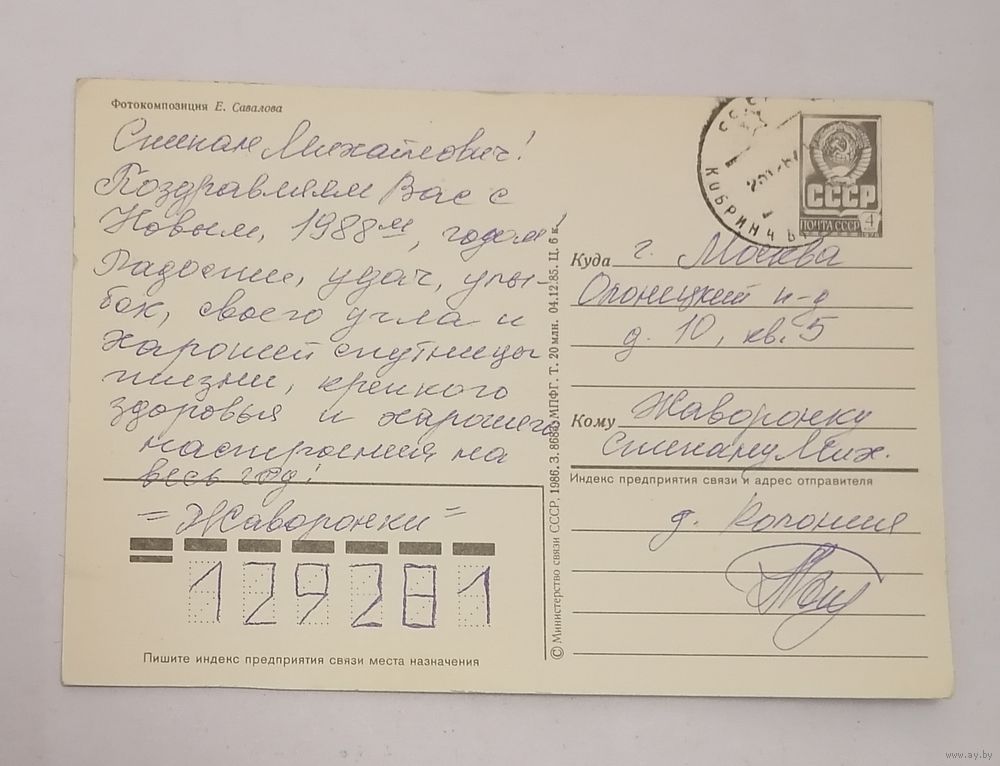 Фотокомпозиция Е. Савалова
Степан Михайлович!
Поздравляем Вас с
Новым, 1988м, годом
Радости, удач, улы-
бок, своего угла и
харошей спутницы
жизни, крепкого
здоровья и харошего
настроения на
весь год!
= Жаворонки =
129281
Пишите индекс предприятия связи места назначения
© Министерство связи СССР, 1986. З. 868а. МПФГ. Т. 20 млн. 04.12.85. Ц. 6 к.
СССР
ПОЧТА СССР 4
Куда г. Москва
Олонецкий п-д
д. 10, кв. 5
Кому Жаворонку
Степану Мих.
Индекс предприятия связи и адрес отправителя
д. Колония
www.ay.by